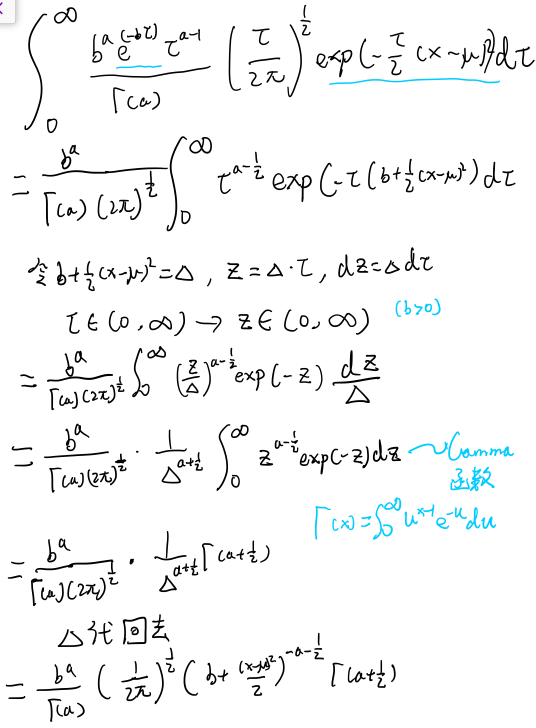 ∫₀^∞ (b^a e^(-bτ) τ^(a-1))/Γ(a) (τ/2π)^(1/2) exp(-τ/2 (x-μ)²)dτ
= b^a/(Γ(a)(2π)^(1/2)) ∫₀^∞ τ^(a-1/2) exp(-τ(b+1/2(x-μ)²)dτ
令 b+1/2(x-μ)²=Δ, z=Δ·τ, dz=Δdτ
τ∈(0,∞) → z∈(0,∞) (b>0)
= b^a/(Γ(a)(2π)^(1/2)) ∫₀^∞ (z/Δ)^(a-1/2) exp(-z) dz/Δ
= b^a/(Γ(a)(2π)^(1/2)) · 1/Δ^(a+1/2) ∫₀^∞ z^(a-1/2) exp(-z)dz ~ Gamma
函数
Γ(x)=∫₀^∞ u^(x-1) e^(-u) du
= b^a/(Γ(a)(2π)^(1/2)) · 1/Δ^(a+1/2) Γ(a+1/2)
Δ代回去
= b^a/Γ(a) (1/2π)^(1/2) (b+(x-μ)²/2)^(-a-1/2) Γ(a+1/2)